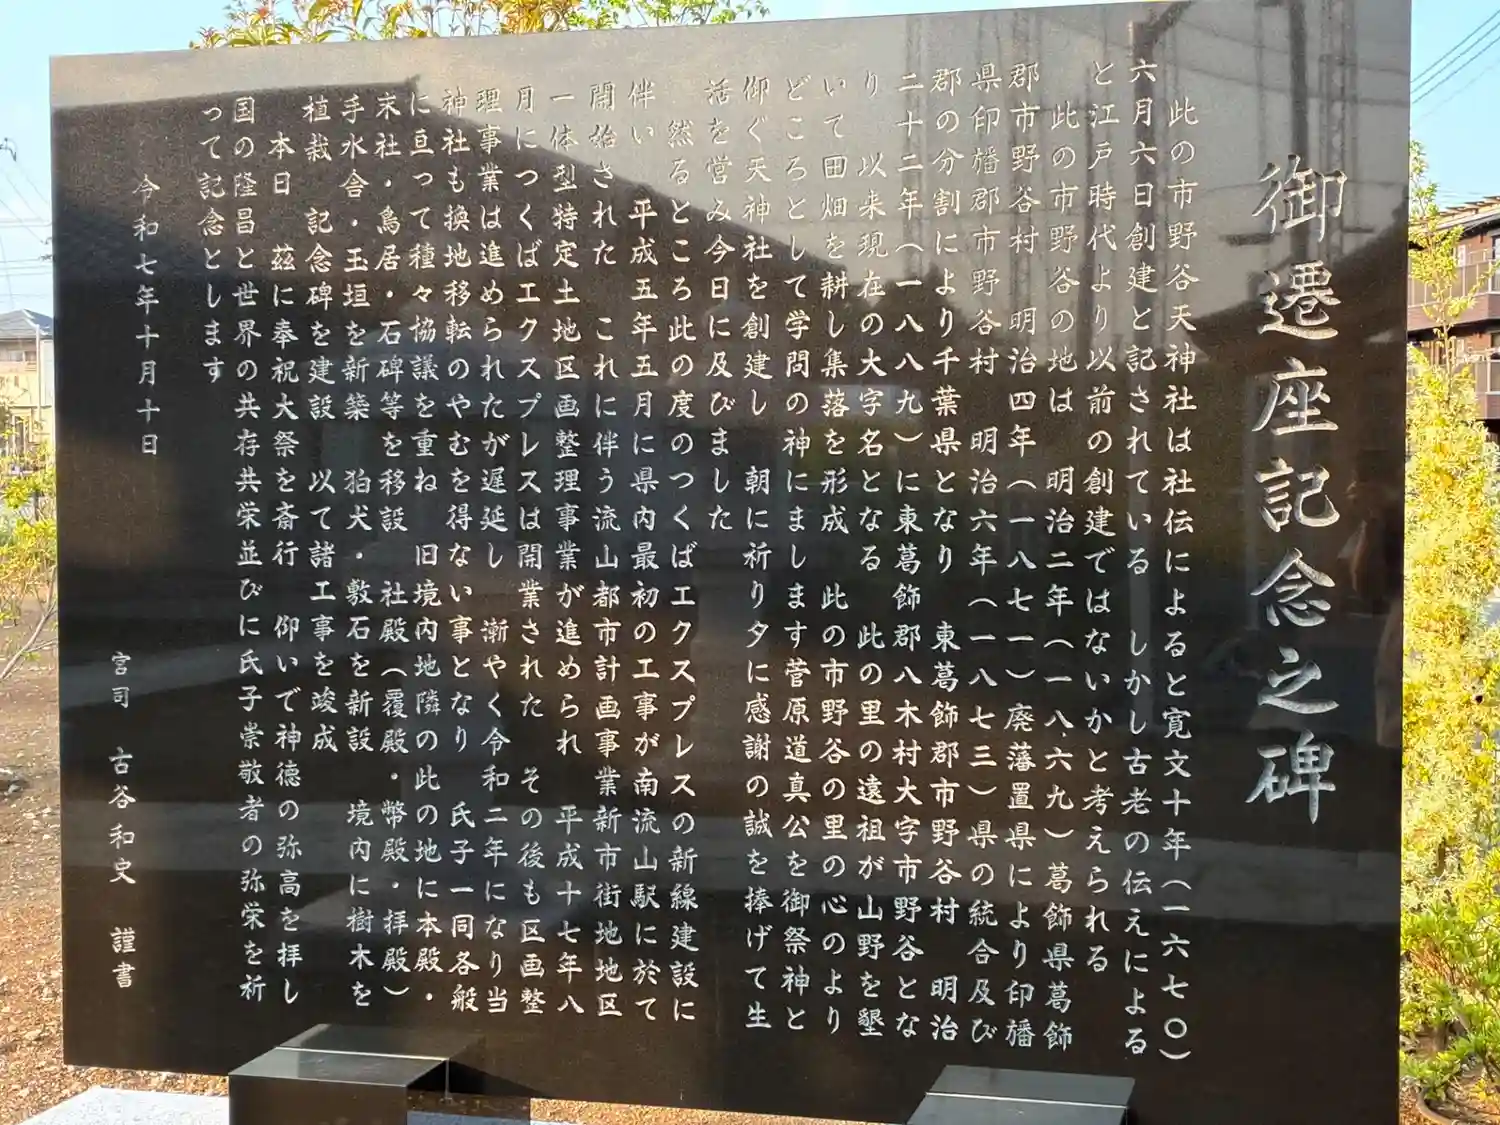 御遷座記念之碑
此の市野谷天神社は社伝によると寛文十年（一六七〇）
六月六日創建と記されている　しかし古老の伝えによる
と江戸時代より以前の創建ではないかと考えられる
此の市野谷の地は　明治二年（一八六九）葛飾県葛飾
郡市野谷村　明治四年（一八七一）廃藩置県により印旛
県印旛郡市野谷村　明治六年（一八七三）県の統合及び
郡の分割により千葉県となり　東葛飾郡市野谷村　明治
二十二年（一八八九）に東葛飾郡八木村大字市野谷とな
り　以来現在の大字名となる　此の里の遠祖が山野を墾
いて田畑を耕し集落を形成　此の市野谷の里の心のより
どころとして学問の神にまします菅原道真公を御祭神と
仰ぐ天神社を創建し　朝に祈り夕に感謝の誠を捧げて生
活を営み今日に及びました
然るところ此の度のつくばエクスプレスの新線建設に
伴い　平成五年五月に県内最初の工事が南流山駅に於て
開始された　これに伴う流山都市計画事業新市街地地区
一体型特定土地区画整理事業が進められ　平成十七年八
月につくばエクスプレスは開業された　その後も区画整
理事業は進められたが遅延し　漸やく令和二年になり当
神社も換地移転のやむを得ない事となり　氏子一同各般
に亘って種々協議を重ね　旧境内地隣の此の地に本殿・
末社・鳥居・石碑等を移設　社殿（覆殿・幣殿・拝殿）
手水舎・玉垣を新築　狛犬・敷石を新設　境内に樹木を
植栽　記念碑を建設　以て諸工事を竣成
本日　茲に奉祝大祭を斎行　仰いで神徳の弥高を拝し
国の隆昌と世界の共存共栄並びに氏子崇敬者の弥栄を祈
って記念とします
令和七年十月十日
宮司　古谷和史　謹書